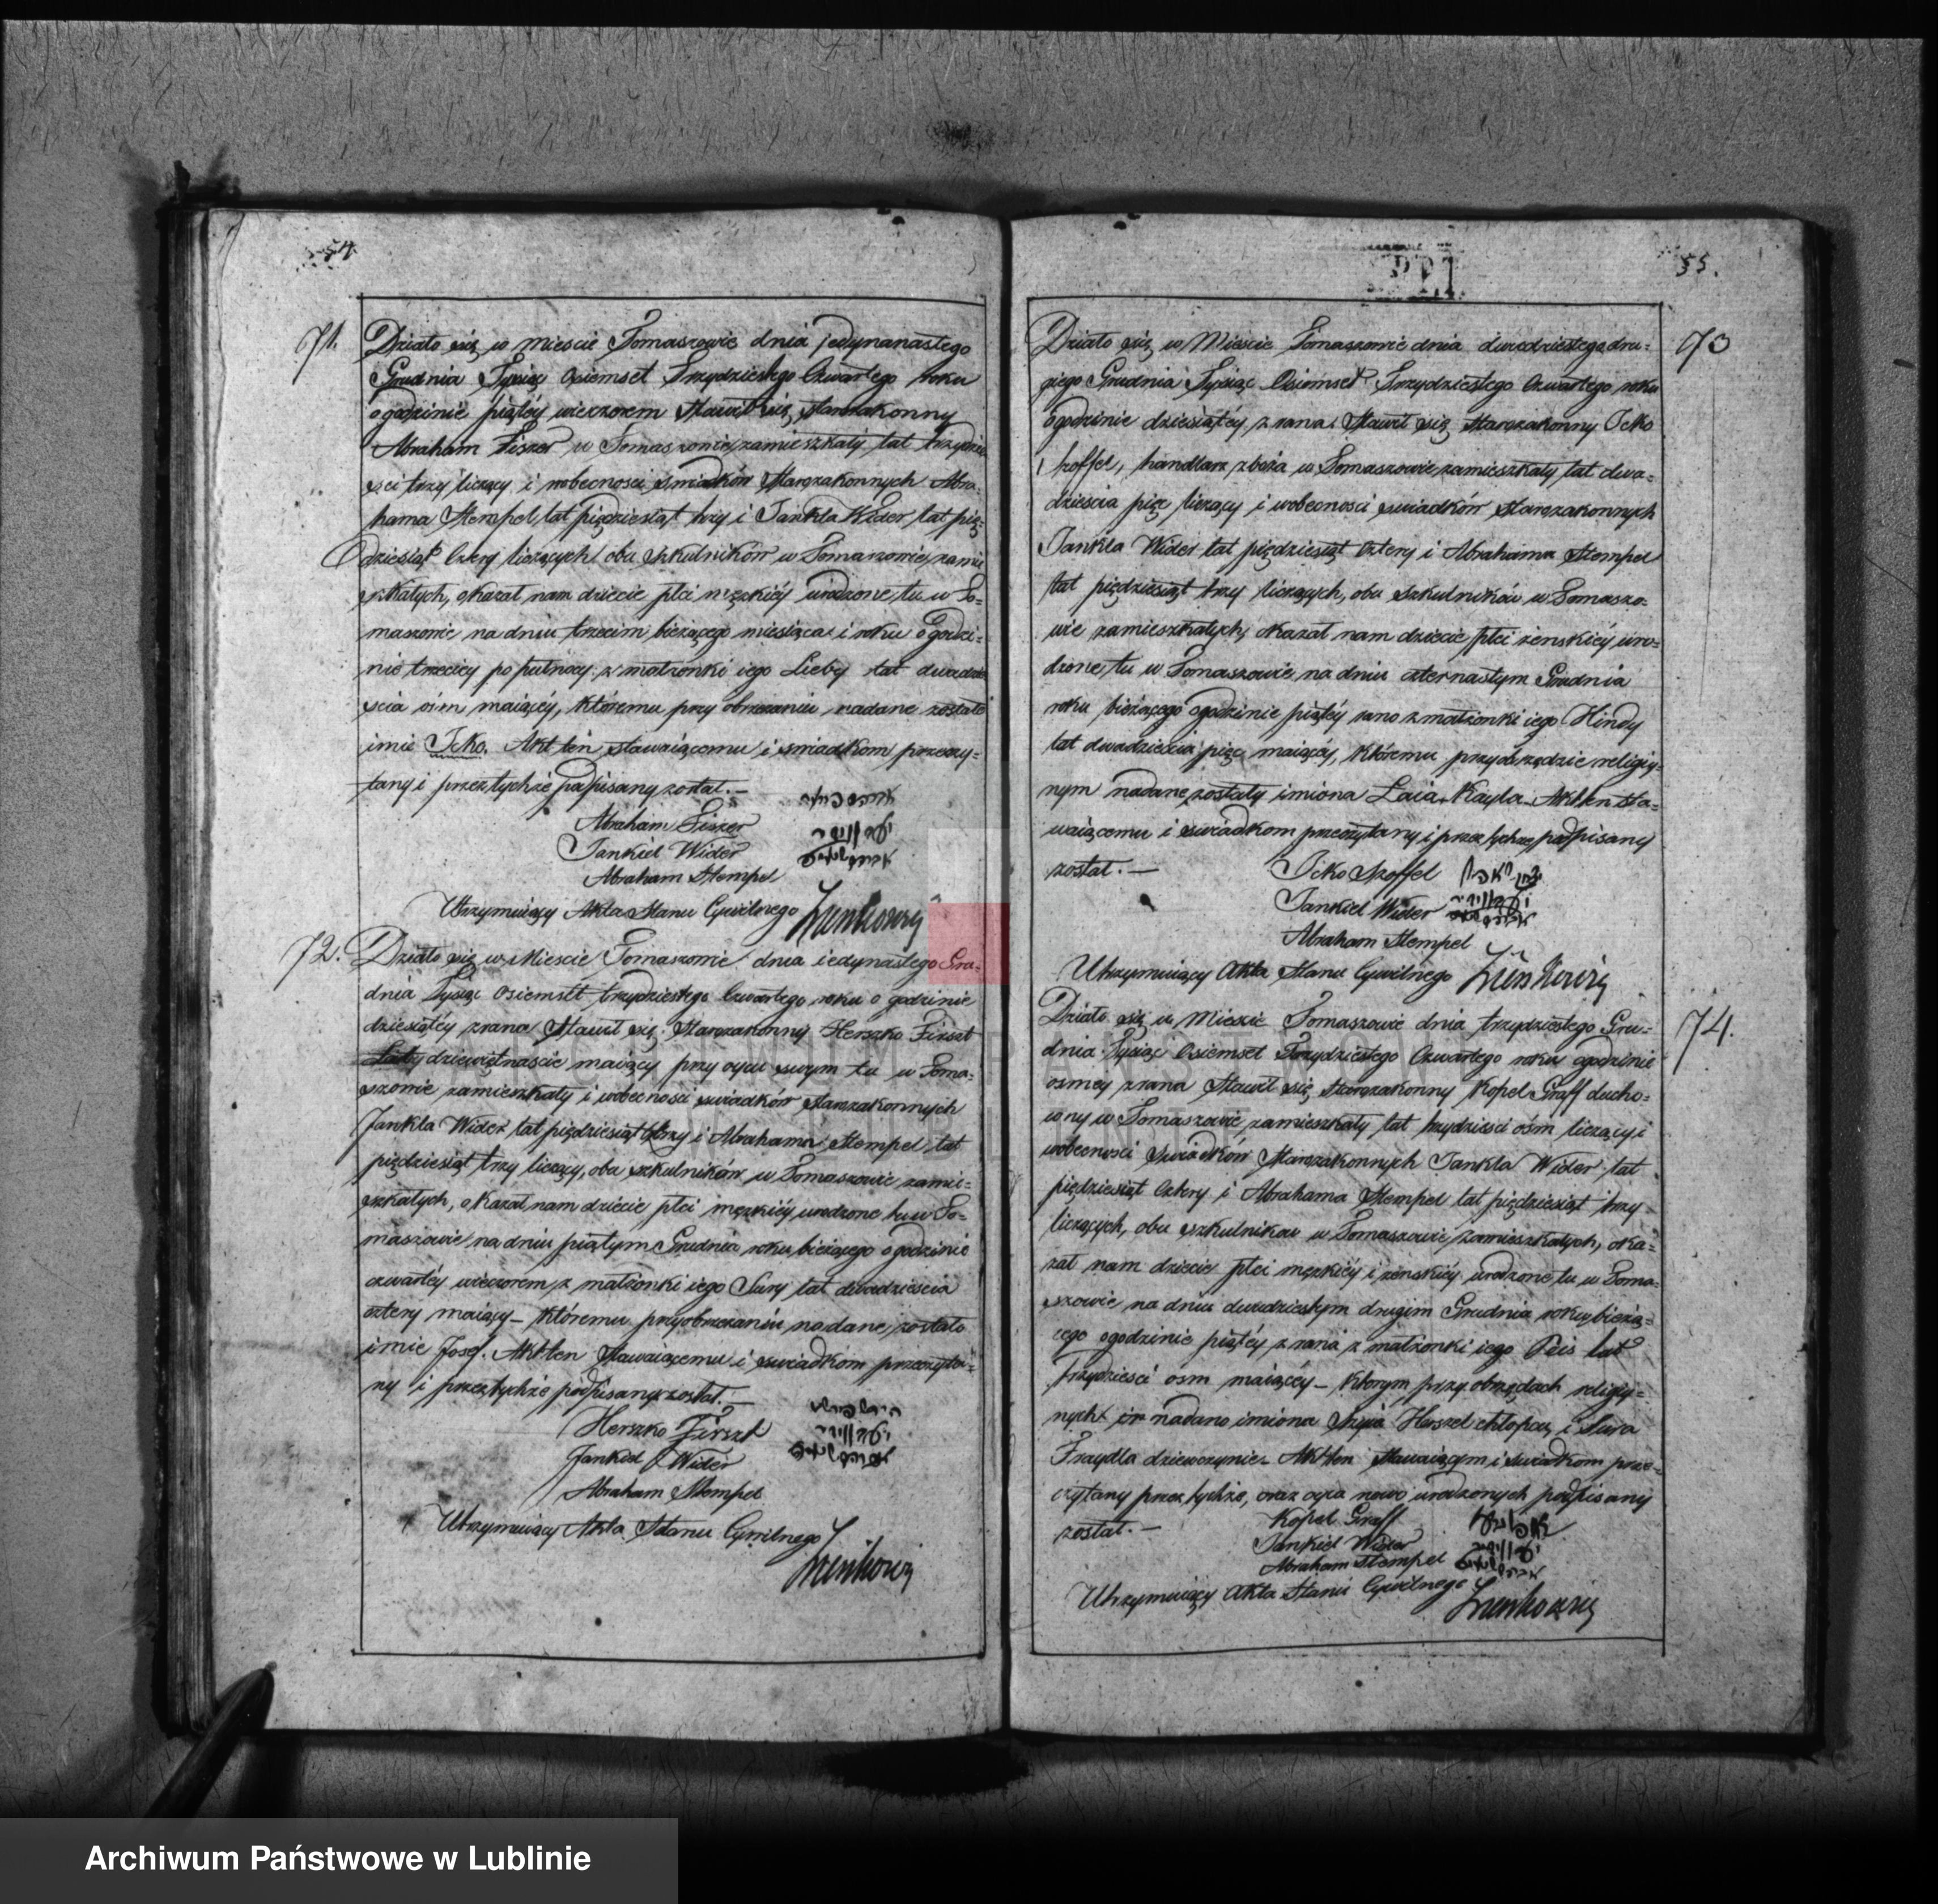 54.
71.
Działo się w Miescie Tomaszowie dnia jedynanastego
Grudnia Tysiąc Osiemset Trzydziestego Czwartego roku
o godzinie piątéy wieczorem Stawił się, starozakonny
Abraham Fiszer w Tomaszowie zamieszkały lat trzydzie
sci trzy liczący i wobecnosci swiadków Starozakonnych Abra-
hama Stempel, lat pięćdziesiąt trzy i Jankla Wider, lat pięć-
dziesiąt Cztery liczących obu szkulników w Tomaszowie zamie
szkałych, okazał nam dziecie płci męzkiéy urodzone tu w To-
maszowie na dniu trzecim bieżącego miesiąca i roku o godzi-
nie trzeciey po pułnocy z małzonki iego Lieby lat dwadzie
scia ósm maiącéy, któremu przy obrzezaniu nadane zostało
imie Icko. Akt ten stawaiącemu i swiadkom przeczy-
tany i przez tychże podpisany został.—
Abraham Fiszer
Jankiel Wider
Abraham Stempel
Utrzymuiący Akta Stanu Cywilnego
72.
Działo się w Miescie Tomaszowie dnia iedynastego Gru-
dnia Tysiąc Osiemset trzydziestego Czwartego roku o godzinie
dziesiątéy zrana Stawił się Starozakonny Herszko Firszt
dziewiętnascie maiący przy oycu swym tu w Toma-
szowie zamieszkały i wobecnosci swiadków starozakonnych
Jankla Wider lat pięćdziesiąt i Abrahama Stempel lat
pięćdziesiąt trzy liczący, obu szkulników w Tomaszowie zamie-
szkałych, okazał nam dziecie płci męzkiéy urodzone tu w To-
maszowie na dniu piątym Grudnia roku bieżącego o godzinie
czwartéy wieczorem z małżonki iego Sury lat dwadziescia
cztery maiącéy — któremu przy obrzezaniu nadane zostało
imie Josef. Akt ten Stawaiącemu i swiadkom przeczyta-
ny i przez tychże podpisany został.—
Herszko Firszt
Jankiel Wider
Abraham Stempel
Utrzymuiący Akta Stanu Cywilnego
55.
73
Działo się w Miescie Tomaszowie dnia dwudziestego dru-
giego Grudnia Tysiąc Osiemset Trzydziestego Czwartego roku
o godzinie dziesiątéy zrana Stawił się Starozakonny Icko
handlarz zboża w Tomaszowie zamieszkały lat dwa-
dziescia pięć liczący i wobecnosci swiadków starozakonnych
Jankla Wider lat pięćdziesiąt Cztery i Abrahama Stempel
lat pięćdziesiąt trzy liczących, obu szkulników w Tomaszo-
wie zamieszkałych, okazał nam dziecie płci żenskiéy uro-
dzone tu w Tomaszowie na dniu czternastym Grudnia
roku bieżącego o godzinie piątéy rano z małżonki iego Hindy
lat dwadziescia pięć maiącéy, któremu przy obrzędzie religiy-
nym nadane zostały imiona Laia Kayla. Akt ten sta-
waiącemu i swiadkom przeczytany i przez tychże podpisany
został.—
Icko
Jankiel Wider
Abraham Stempel
Utrzymuiący Akta Stanu Cywilnego
74.
Działo się w Miescie Tomaszowie dnia trzydziestego Gru-
dnia Tysiąc Osiemset Trzydziestego Czwartego roku o godzinie
osmey zrana Stawił się, Starozakonny Kopel Graff ducho-
wny w Tomaszowie zamieszkały lat trzydziesci ósm liczący i
wobecnosci swiadków Starozakonnych Jankla Wider lat
pięćdziesiąt Cztery i Abrahama Stempel lat pięćdziesiąt trzy
liczących, obu szkulników w Tomaszowie zamieszkałych, oka-
zał nam dziecie płci męzkiéy i żenskiéy urodzone tu w Toma-
szowie na dniu dwudziestym drugim Grudnia roku bieżą-
cego o godzinie piątéy z rana z małzonki iego lat
trzydziesci osm maiącéy — którym przy obrzędach religiy-
nych nadano imiona Herszel chłopcu, i Sura
Fraydla dziewczynie. Akt ten Stawaiącym i swiadkom prze-
czytany przez tychże, oraz oyca nowo urodzonych podpisany
został.—
Kopel Graff
Jankiel Wider
Abraham Stempel
Utrzymuiący Akta Stanu Cywilnego
Archiwum Państwowe w Lublinie